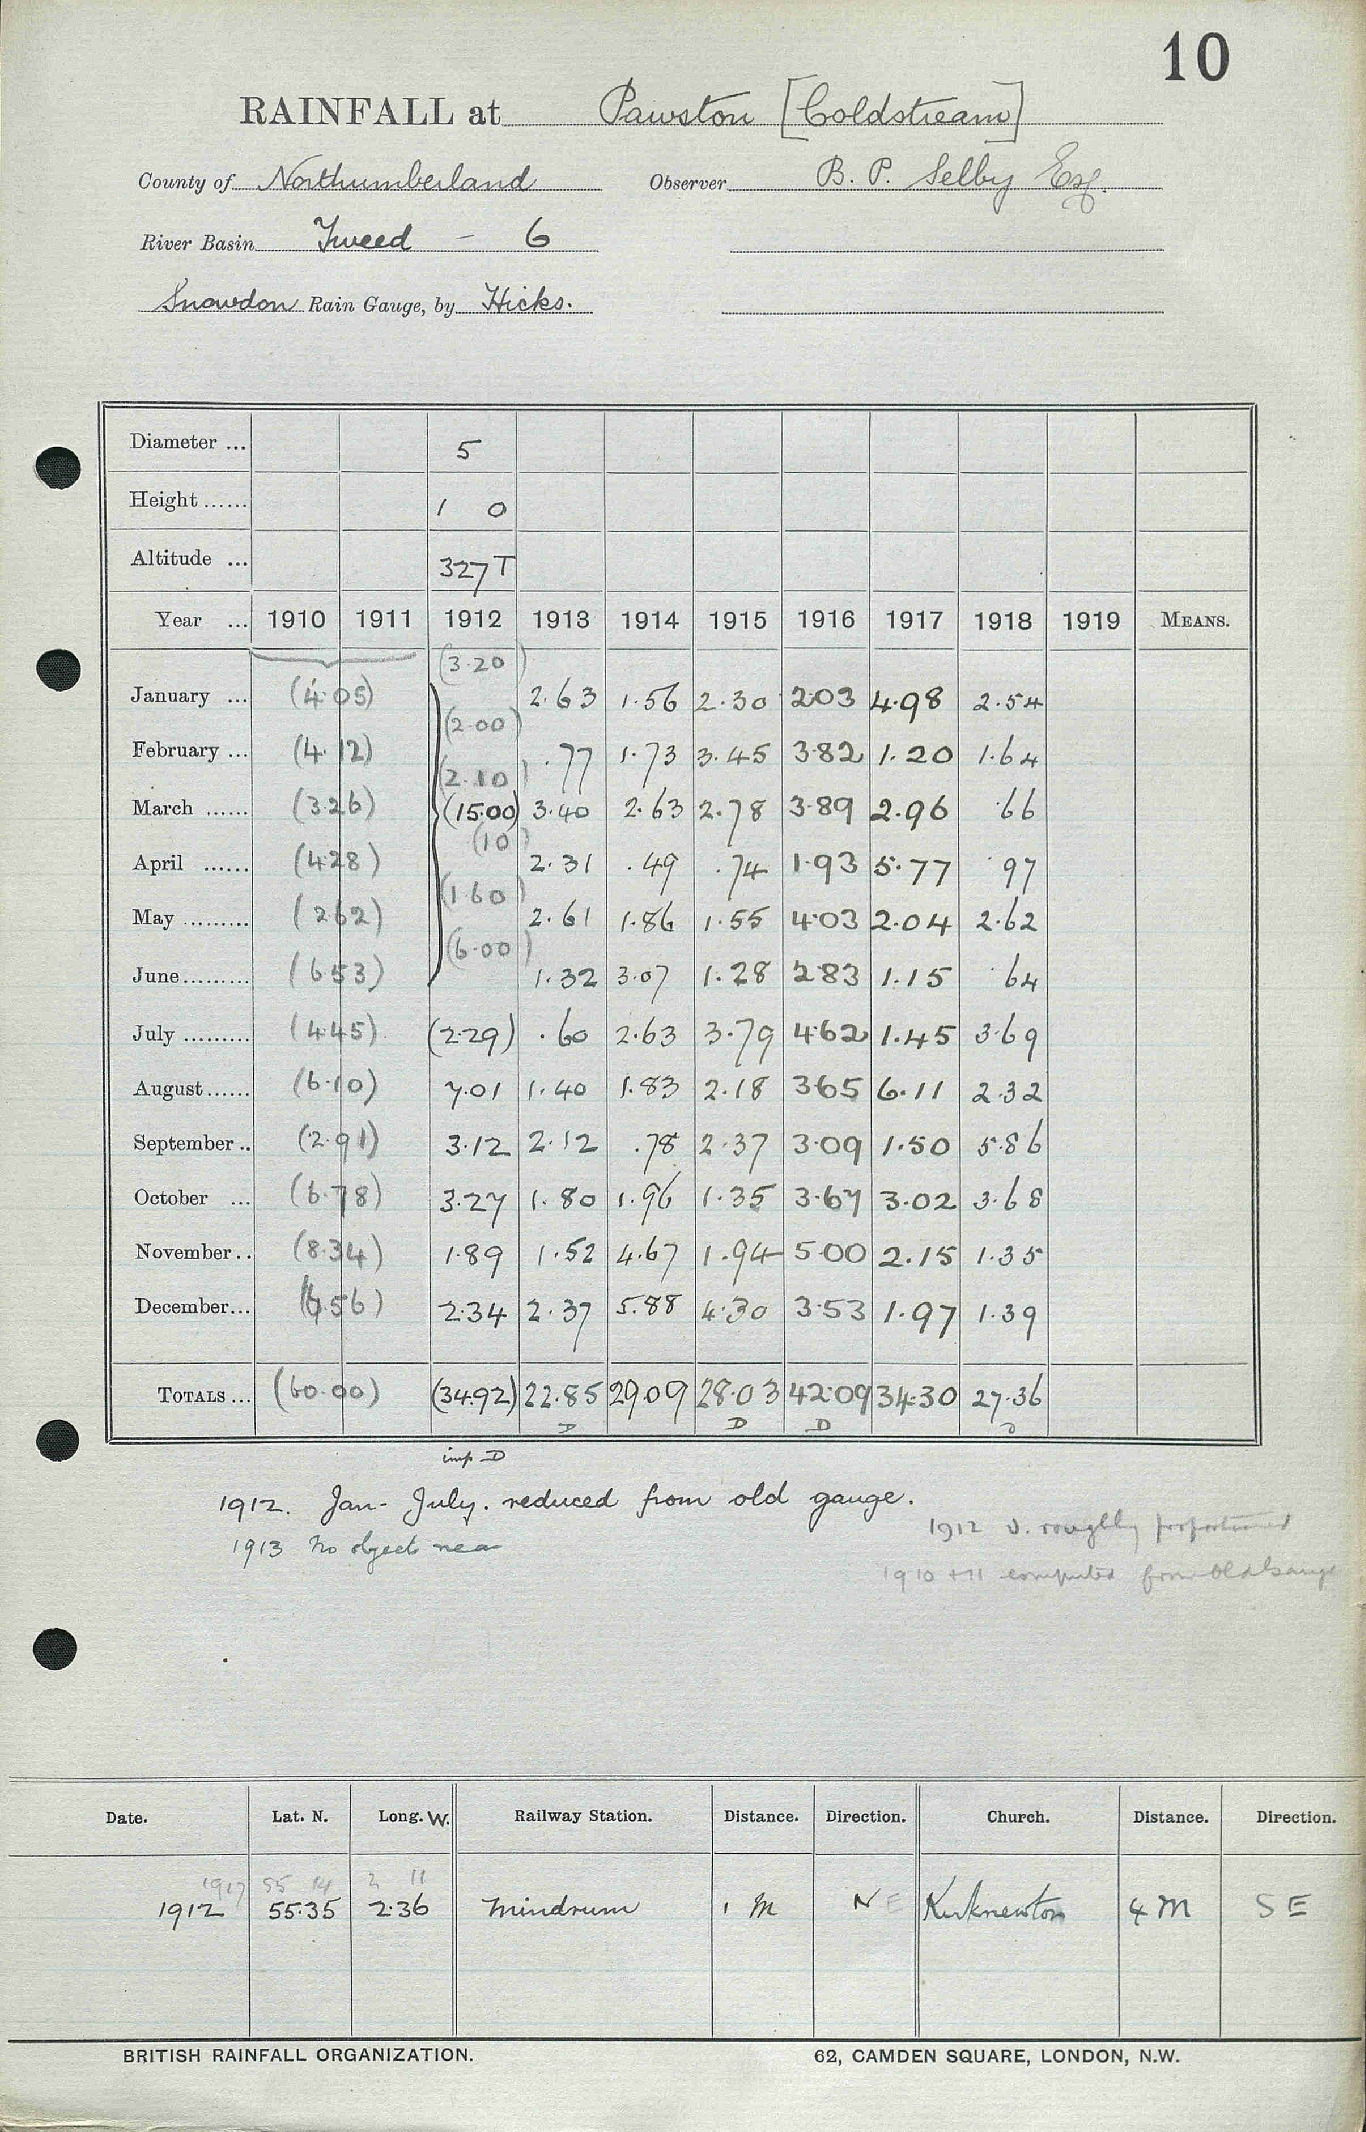 10
RAINFALL at Pawston [Coldstream]
County of Northumberland Observer B. P. Selby Esq.
River Basin Tweed - 6
Snowdon Rain Gauge, by Hicks.
Diameter ... 5
Height ...... 1 0
Altitude ... 327 T
Year ... 1910 1911 1912 1913 1914 1915 1916 1917 1918 1919 MEANS.
(3.20)
January ... (4.05) 2.63 1.56 2.30 2.03 4.98 2.54
(2.00)
February ... (4.12) .77 1.73 3.45 3.82 1.20 1.64
(2.10)
March ...... (3.26) (15.00) 3.40 2.63 2.78 3.89 2.96 .66
(10)
April ...... (4.28) 2.31 .49 .74 1.93 5.77 .97
(1.60)
May ......... (2.62) 2.61 1.86 1.55 4.03 2.04 2.62
(6.00)
June ......... (6.53) 1.32 3.07 1.28 2.83 1.15 .64
July ......... (4.45) (2.29) .60 2.63 3.79 4.62 1.45 3.69
August ...... (6.10) 7.01 1.40 1.83 2.18 3.65 6.11 2.32
September .. (2.91) 3.12 2.12 .78 2.37 3.09 1.50 5.86
October ... (6.78) 3.27 1.80 1.96 1.35 3.67 3.02 3.68
November .. (8.34) 1.89 1.52 4.67 1.94 5.00 2.15 1.35
December ... (6.56) 2.34 2.37 5.88 4.30 3.53 1.97 1.39
TOTALS ... (60.00) (34.92) 22.85 29.09 28.03 42.09 34.30 27.36
D D D D
imp D
1912. Jan - July. reduced from old gauge.
1912 v. roughly proportioned
1913 No object near
1910 + 11 computed from Old Gauge
Date. Lat. N. Long. W. Railway Station. Distance. Direction. Church. Distance. Direction.
1917 55 14 2 11
1912 55.35 2.36 Mindrum 1 M NE Kirknewton 4 M S E
BRITISH RAINFALL ORGANIZATION. 62, CAMDEN SQUARE, LONDON, N.W.